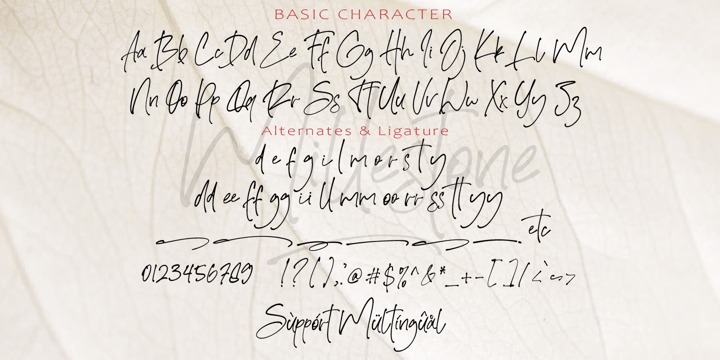 BASIC CHARACTER
Aa Bb Cc Dd Ee Ff Gg Hh Ii Jj Kk Ll Mm
Nn Oo Pp Qq Rr Ss Tt Uu Vv Ww Xx Yy Zz
Alternates & Ligature
Millestone
d e f g i l m o r s t y
dd ee ff gg ii ll mm oo rr ss tt yy
etc
0123456789 !?(),:@#$%^&*_+-[]/<=>
Sùppórt Mültíngûål